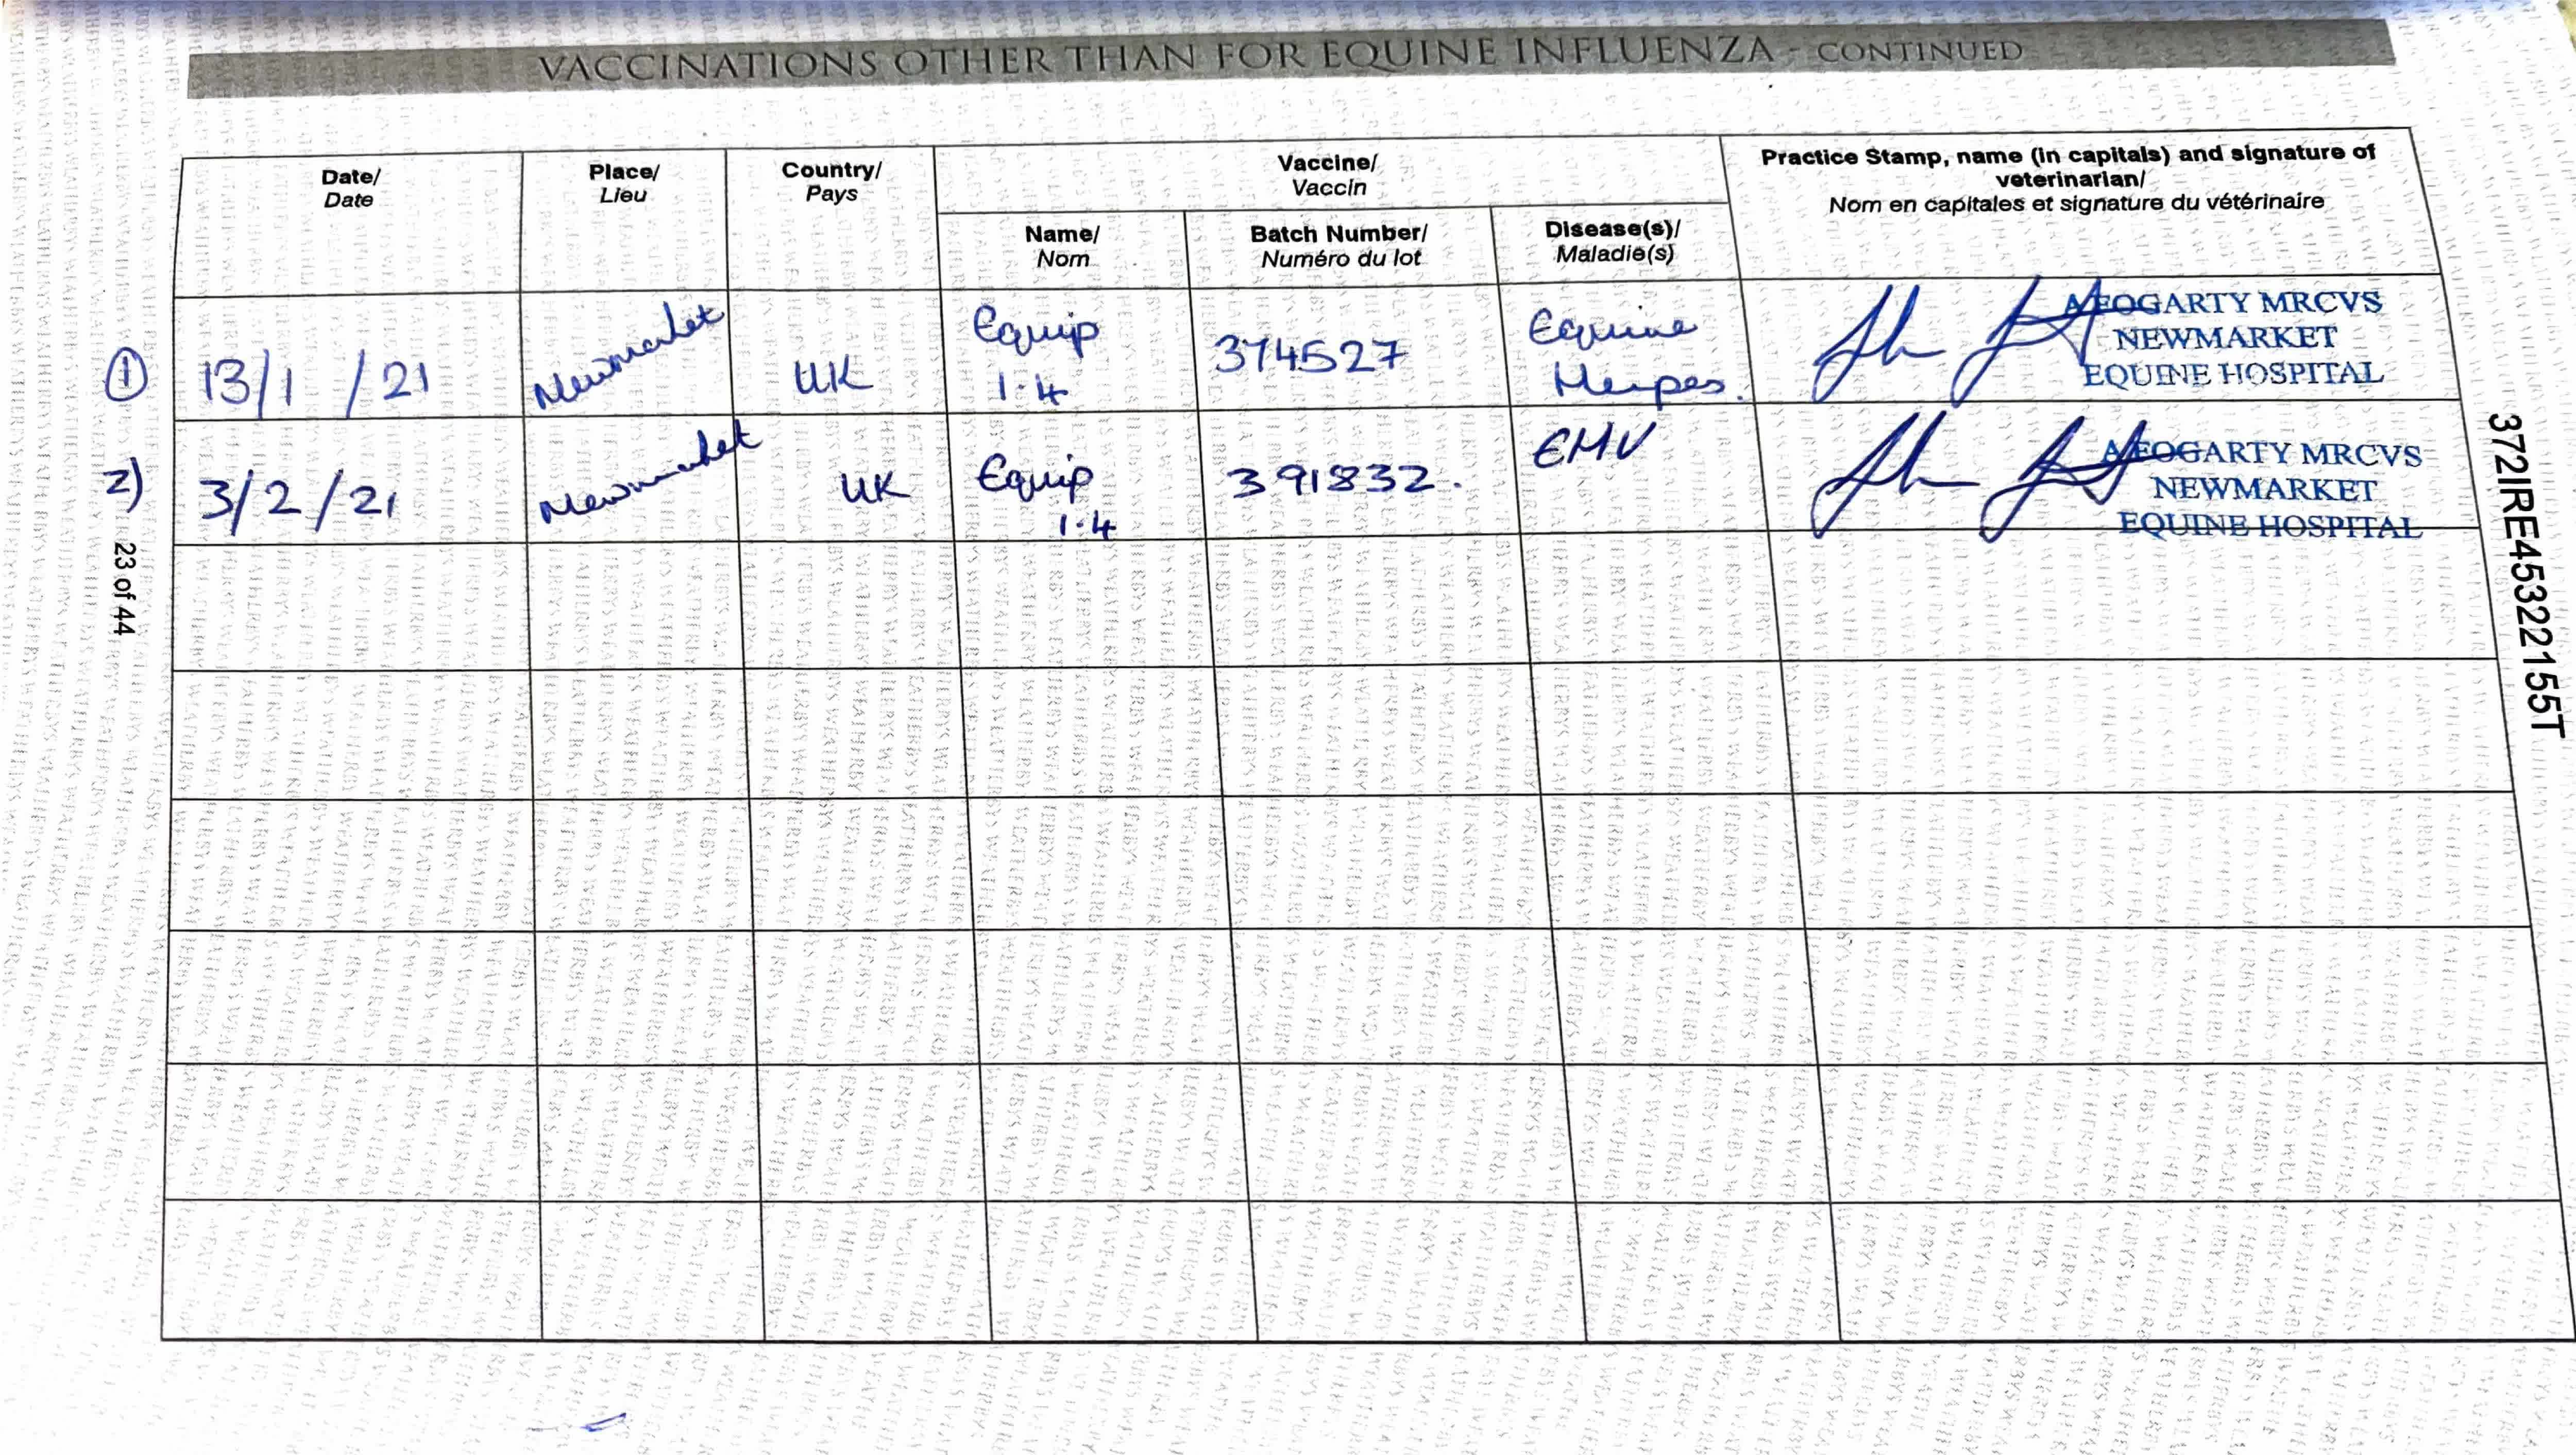 VACCINATIONS OTHER THAN FOR EQUINE INFLUENZA - CONTINUED
Date/
Date
Place/
Lieu
Country/
Pays
Vaccine/
Vaccin
Name/
Nom
Batch Number/
Numéro du lot
Disease(s)/
Maladie(s)
Practice Stamp, name (in capitals) and signature of
veterinarian/
Nom en capitales et signature du vétérinaire
① 13/1 /21 Newmarket UK
Equip
1.4
374527
Equine
Herpes.
A FOGARTY MRCVS
NEWMARKET
EQUINE HOSPITAL
2) 3/2/21 Newmarket UK
Equip
1.4
391832.
EHV
A FOGARTY MRCVS
NEWMARKET
EQUINE HOSPITAL
23 of 44
372IRE45322155T